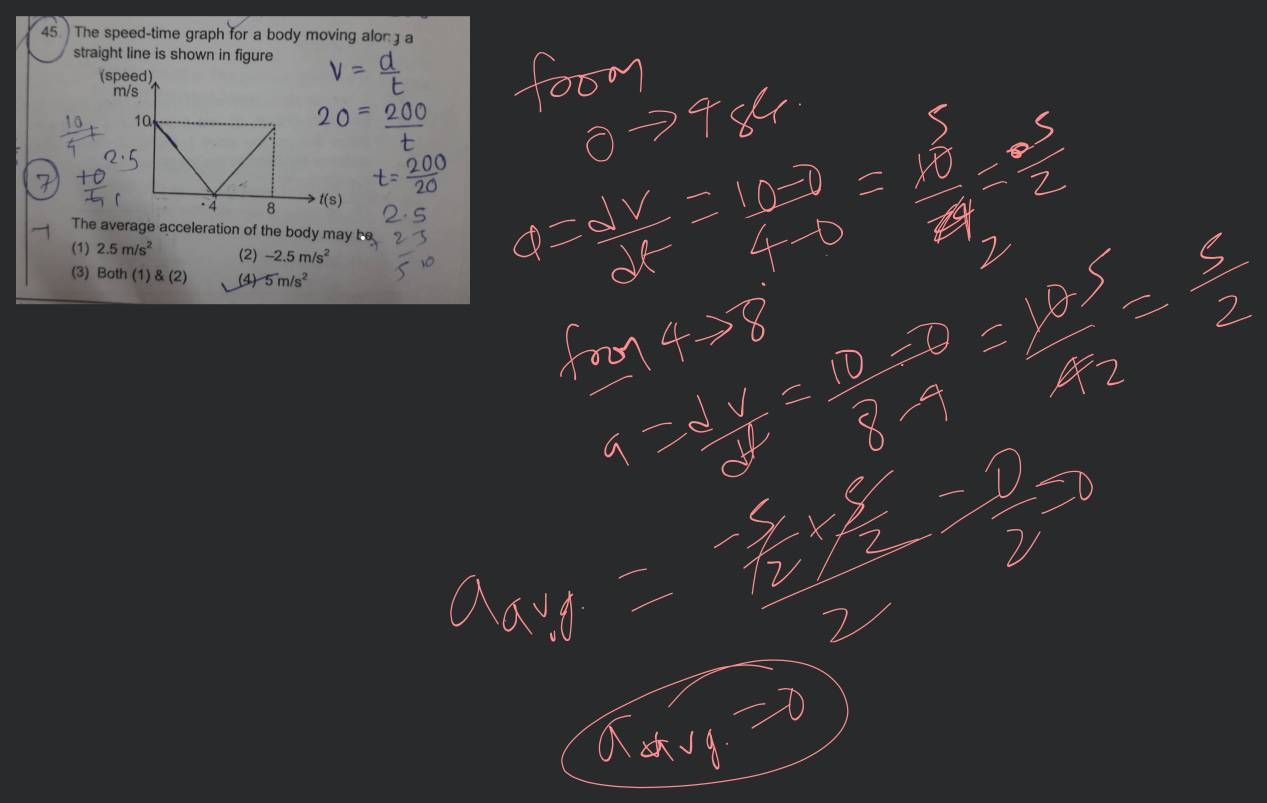 45. The speed-time graph for a body moving along a
straight line is shown in figure
(speed)
m/s
10
4
8
t(s)
The average acceleration of the body may be
(1) 2.5 m/s²
(2) –2.5 m/s²
(3) Both (1) & (2)
(4) 5 m/s²
V = d/t
20 = 200/t
t = 200/20
2.5
10
2.5
7
from
0 → 4 sec.
a = dv/dt = 10-0/4-0 = 10/4 = 5/2
5
2
from 4 → 8
a = dv/dt = 10-0/8-4 = 10/4 = 5/2
5
2
a avg. = -5/2 + 5/2 / 2 = 0/2 = 0
a avg. = 0